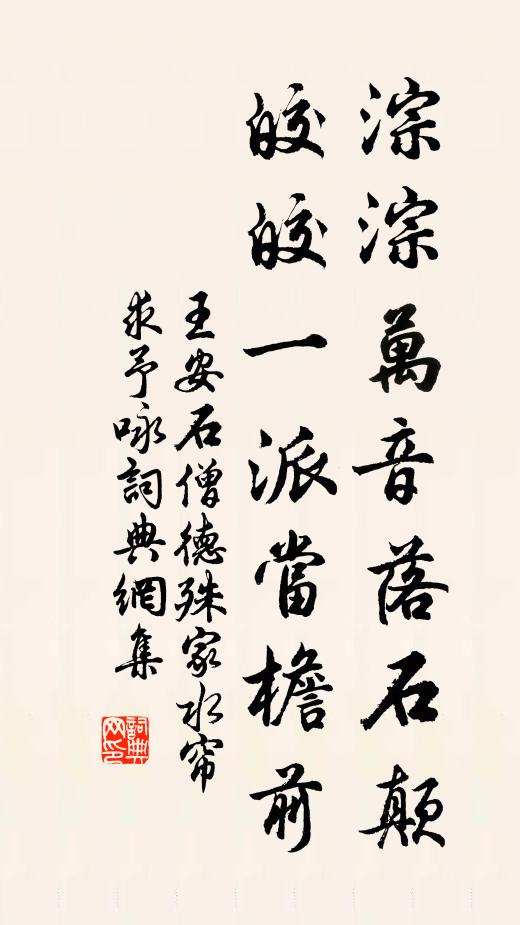 淙淙萬音落石顛
皎皎一派當檐前
王安石僧德殊家水帘
求予咏詞典網集
詞典网印